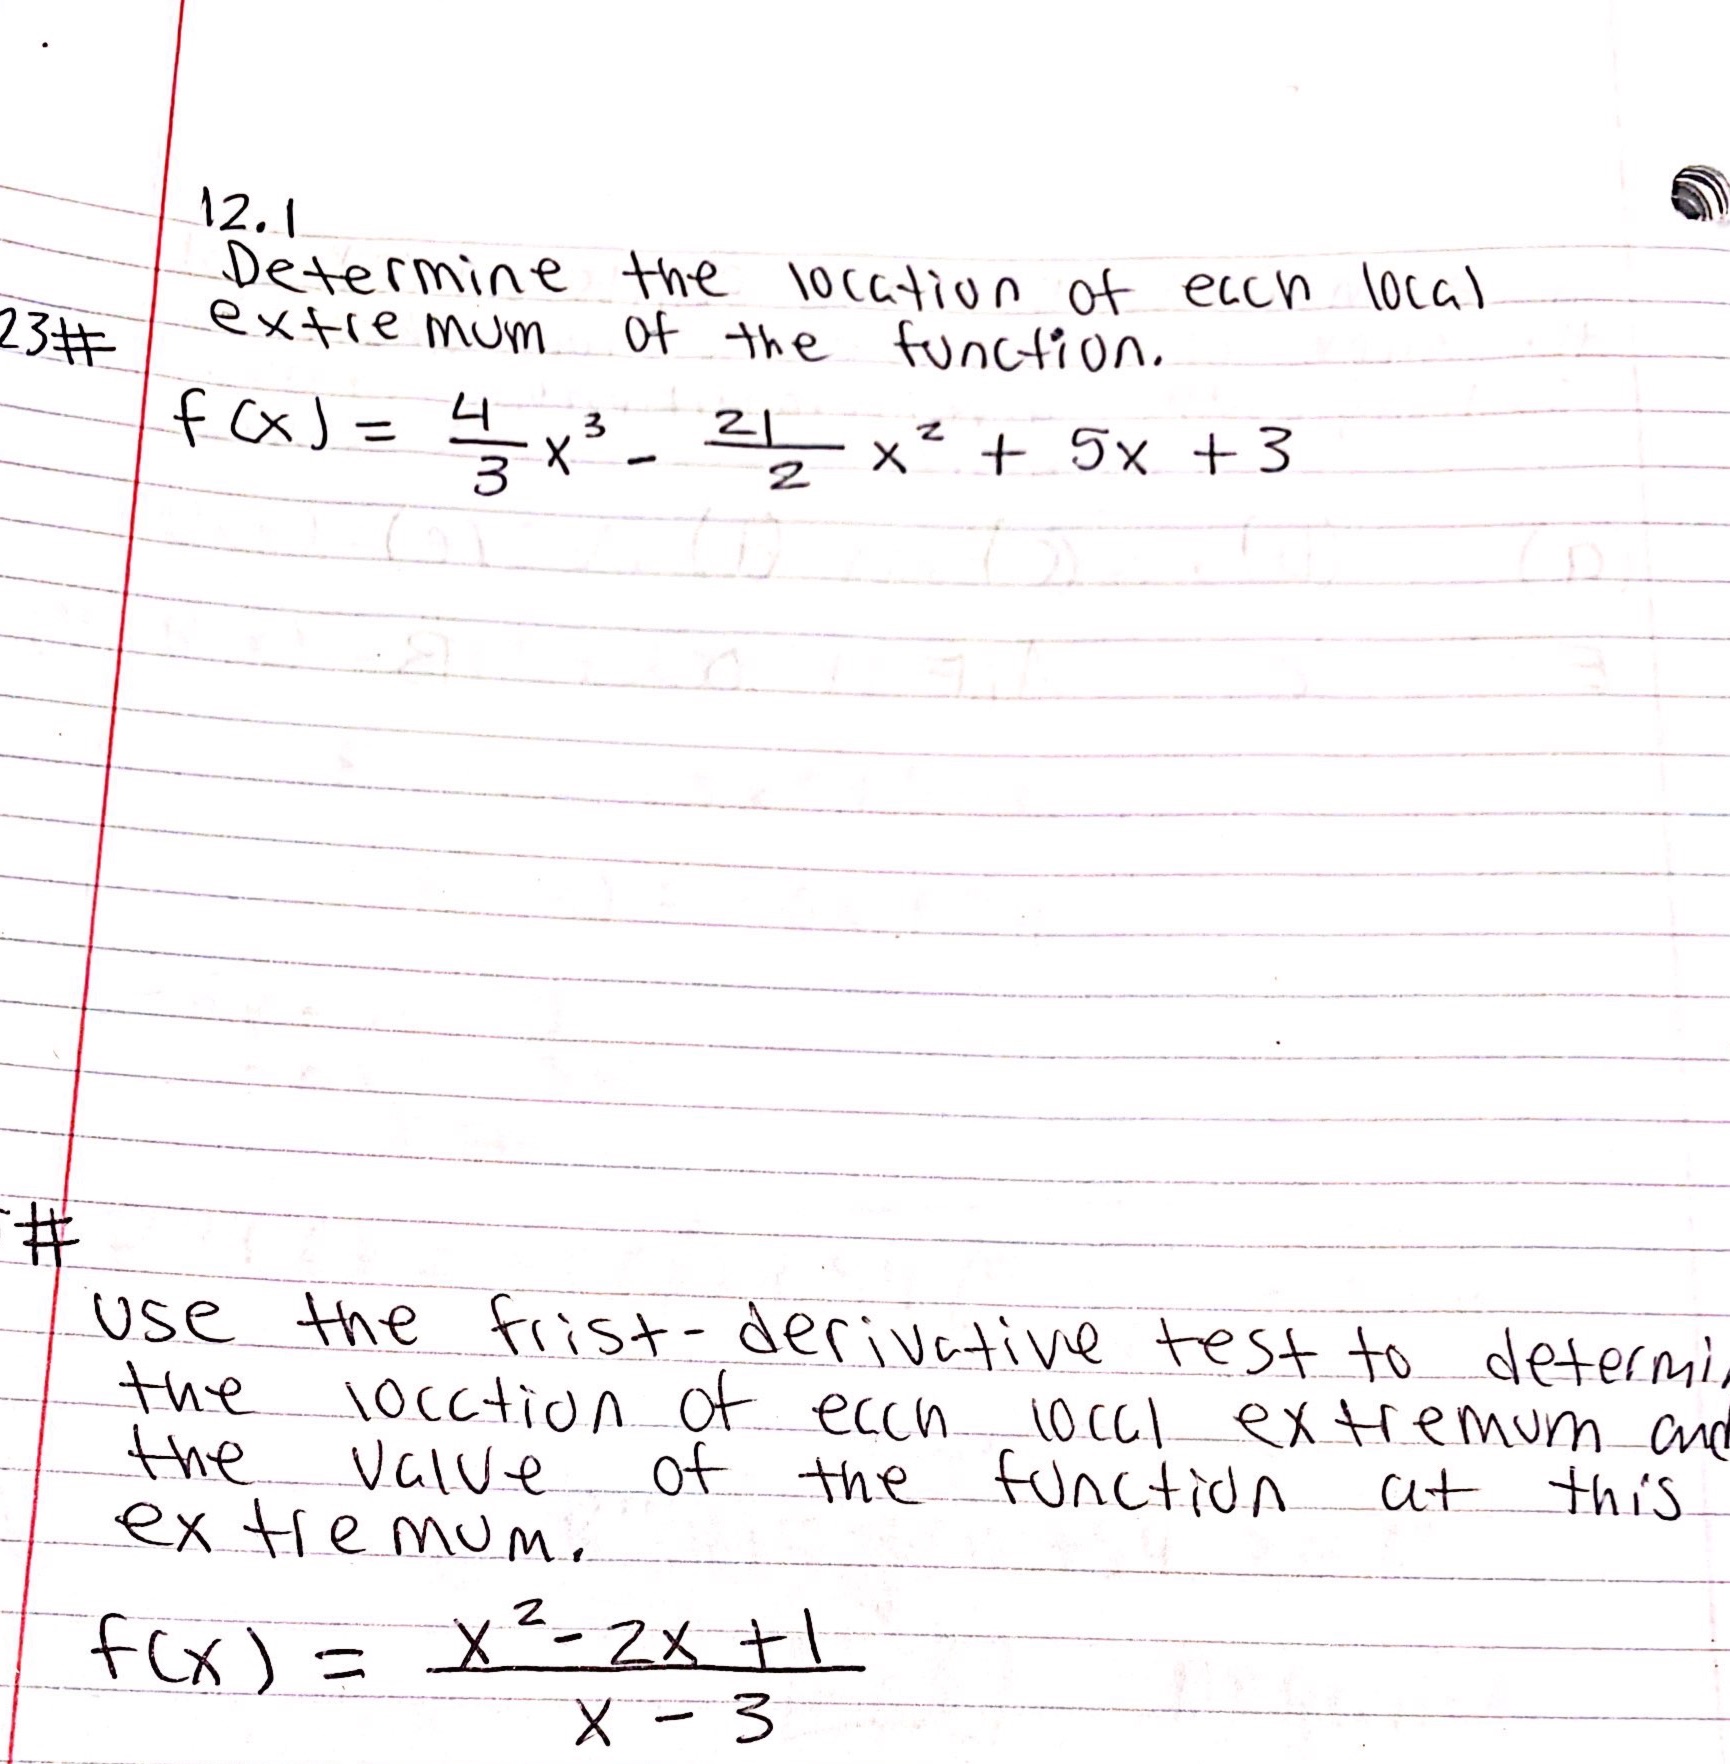 12.1
Determine the location of each local
23# extremum of the function.
f(x) = 4/3 x³ - 21/2 x² + 5x + 3
#
Use the frist-derivative test to determi
the location of each local extremum and
the value of the function at this
extremum.
f(x) = x² - 2x + 1 / x - 3